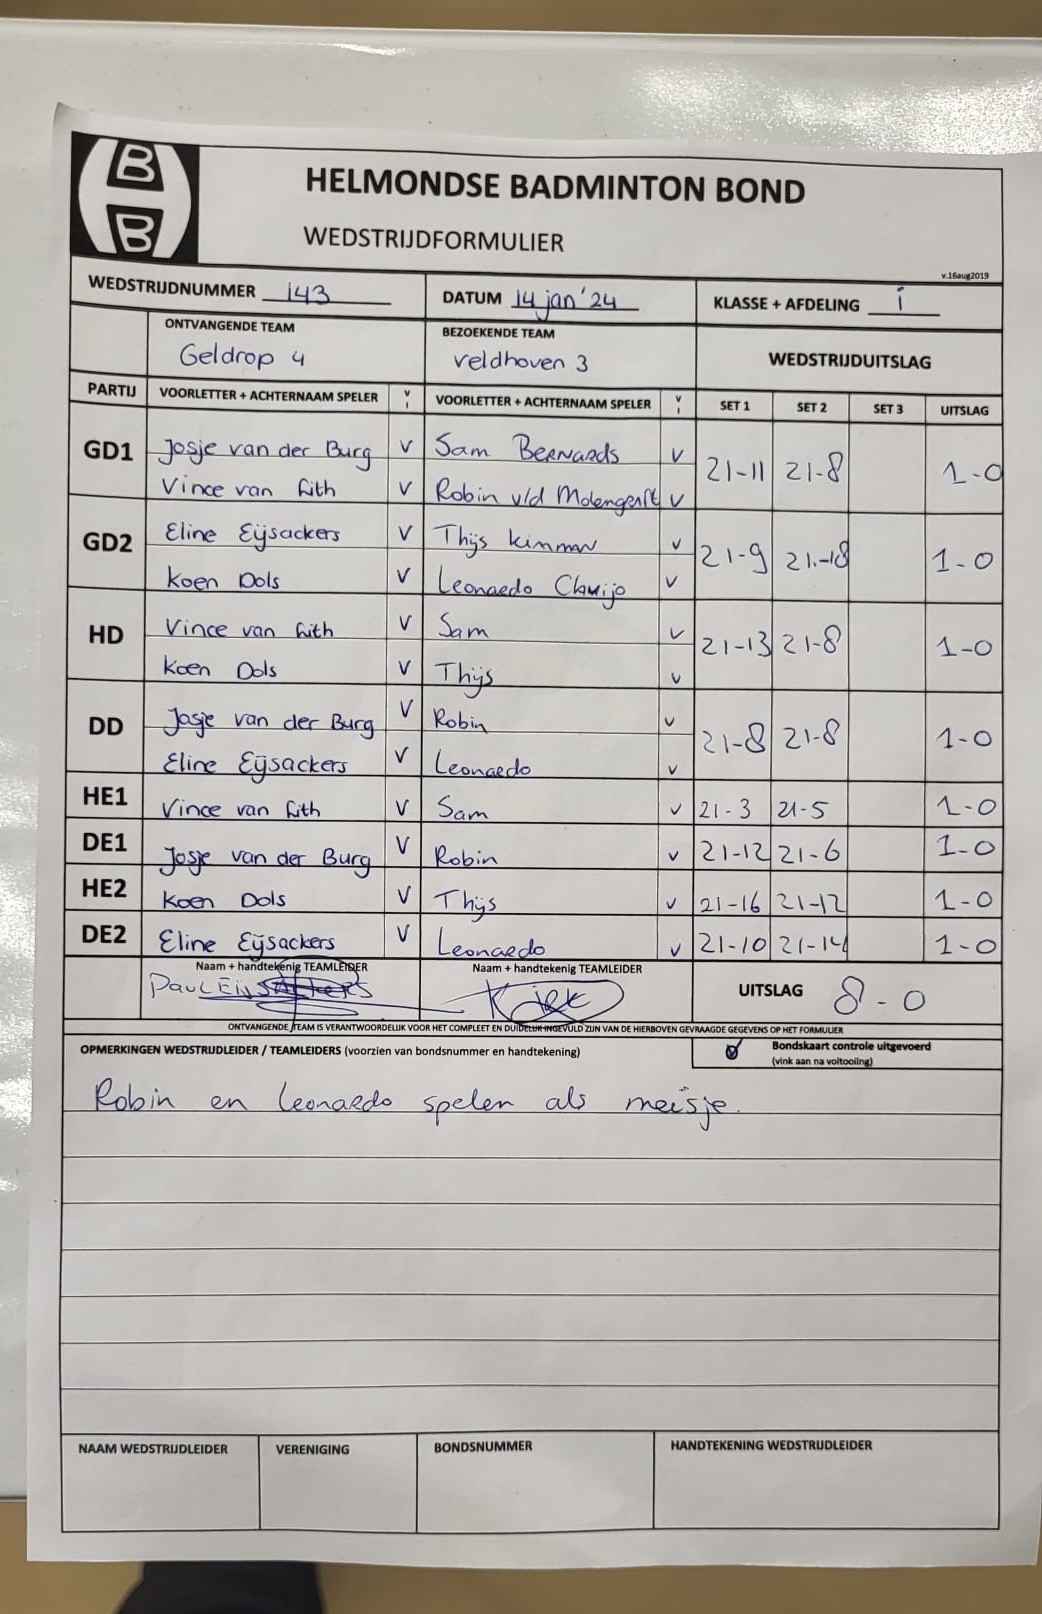 HBB
HELMONDSE BADMINTON BOND
WEDSTRIJDFORMULIER
v.16aug2019
WEDSTRIJDNUMMER i43 DATUM 14 jan '24 KLASSE + AFDELING i
ONTVANGENDE TEAM BEZOEKENDE TEAM WEDSTRIJDUITSLAG
Geldrop 4 Veldhoven 3
PARTIJ VOORLETTER + ACHTERNAAM SPELER V I VOORLETTER + ACHTERNAAM SPELER V I SET 1 SET 2 SET 3 UITSLAG
GD1 Josje van der Burg V Sam Bernards V 21-11 21-8 1-0
Vince van Lith V Robin v/d Molengraft V
GD2 Eline Eijsackers V Thijs Kimman V 21-9 21-18 1-0
Koen Dols V Leonardo V
HD Vince van Lith V Sam V 21-13 21-8 1-0
Koen Dols V Thijs V
DD Josje van der Burg V Robin V 21-8 21-8 1-0
Eline Eijsackers V Leonardo V
HE1 Vince van Lith V Sam V 21-3 21-5 1-0
DE1 Josje van der Burg V Robin V 21-12 21-6 1-0
HE2 Koen Dols V Thijs V 21-16 21-12 1-0
DE2 Eline Eijsackers V Leonardo V 21-10 21-14 1-0
Naam + handtekenig TEAMLEIDER Naam + handtekening TEAMLEIDER
PAUL EIJSACKERS UITSLAG 8-0
ONTVANGENDE TEAM IS VERANTWOORDELIJK VOOR HET COMPLEET EN DUIDELIJK INGEVULD ZIJN VAN DE HIERBOVEN GEVRAAGDE GEGEVENS OP HET FORMULIER
OPMERKINGEN WEDSTRIJDLEIDER / TEAMLEIDERS (voorzien van bondsnummer en handtekening) Bondskaart controle uitgevoerd
(vink aan na voltooiing)
Robin en Leonardo spelen als meisje.
NAAM WEDSTRIJDLEIDER VERENIGING BONDSNUMMER HANDTEKENING WEDSTRIJDLEIDER